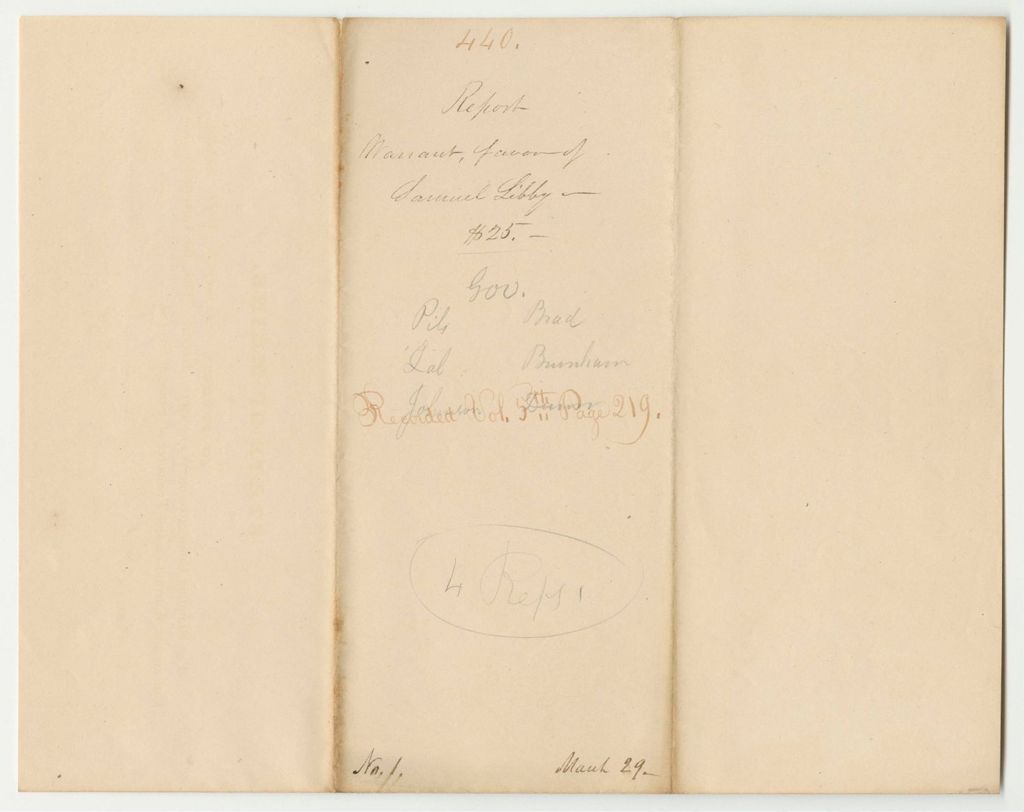 440.
Report
Warrant, favor of
Samuel Libby
$25. –
Gov.
Brad
Burnham
Johnson
Recorded Vol. 5th Page 219.
4 Reps
No. 1.
March 29